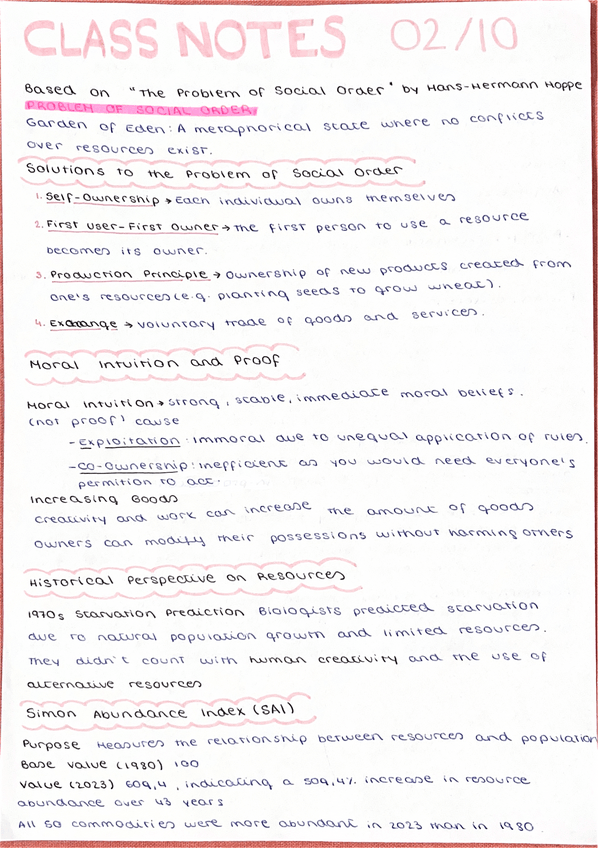 CLASS NOTES 02/10
Based on "The Problem of Social Order" by Hans-Hermann Hoppe
PROBLEM OF SOCIAL ORDER.
Garden of Eden: A metaphorical state where no conflicts
over resources exist.
Solutions to the Problem of Social Order
1. Self-Ownership → Each individual owns themselves
2. First User-First Owner → the first person to use a resource
becomes its owner.
3. Production Principle → Ownership of new products created from
one's resources (e.g. planting seeds to grow wheat).
4. Exchange → voluntary trade of goods and services.
Moral Intuition and Proof
Moral Intuition → strong, stable, immediate moral beliefs.
(not proof) cause
- Exploitation: Immoral due to unequal application of rules.
- Co-Ownership: Inefficient as you would need everyone's
permition to act.
Increasing Goods
Creativity and work can increase the amount of goods
Owners can modify their possessions without harming others
Historical Perspective on Resources
1970s Starvation Prediction Biologists predicted starvation
due to natural population growth and limited resources.
They didn't count with human creativity and the use of
alternative resources
Simon Abundance Index (SAI)
Purpose Measures the relationship between resources and population
Base Value (1980) 100
Value (2023) 609,4, indicating a 509,4% increase in resource
abundance over 43 years
All 50 commodities were more abundant in 2023 than in 1980.